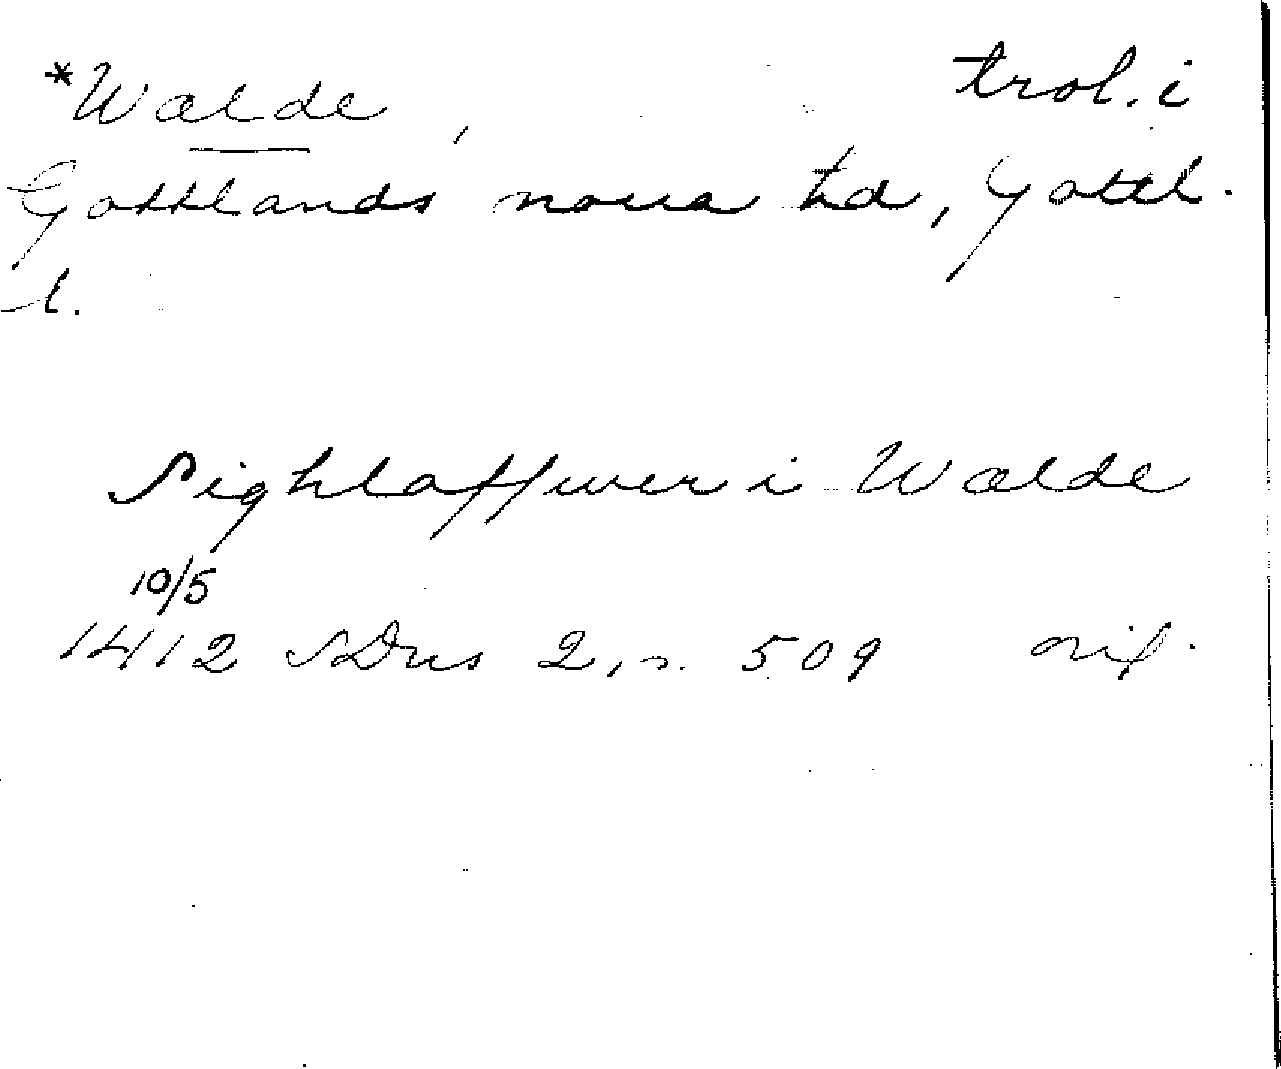 *Wælde, trol. i
Gottlands norra hd, Gottl.
l.
Sighlaffwer i Wælde
10/5
1412 SDns 2, s. 509 orig.